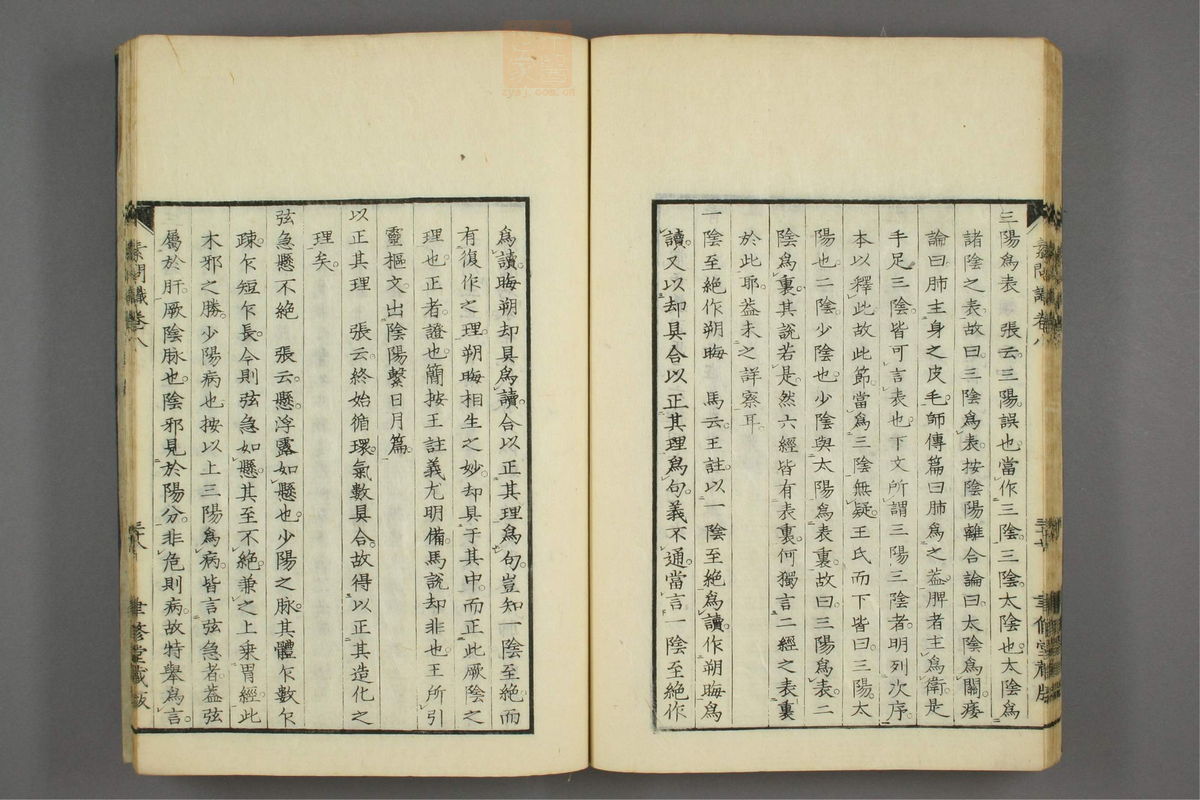 三陽爲表　張云三陽誤也當作三陰三陰太陰也太陰爲
諸陰之表故曰三陰爲表按陰陽離合論曰太陰爲關痿
論曰肺主身之皮毛師傳篇曰肺爲之葢脾者主爲衛是
手足三陰皆可言表也下文所謂三陽三陰者明列次序
本以釋此故此節當爲三陰無疑王氏而下皆曰三陽太
陽也二陰少陰也少陰與太陽爲表裏故曰三陽爲表二
陰爲裏其說若是然六經皆有表裏何獨言二經之表裏
於此耶葢未之詳察耳
一陰至絕作朔晦　馬云王註以一陰至絕爲讀作朔晦爲
讀又以却具合以正其理爲句義不通當言一陰至絕作
素問識卷八
三十七
聿修堂
爲讀晦朔却具爲讀合以正其理爲句豈知一陰至絕而
有復作之理朔晦相生之妙却具于其中而正此厥陰之
理也正者證也簡按王註義尤明備馬說却非也王所引
靈樞文出陰陽繫日月篇
以正其理　張云終始循環氣數具合故得以正其造化之
理矣
弦急懸不絕　張云懸浮露如懸也少陽之脉其體乍數乍
疎乍短乍長今則弦急如懸其至不絕兼之上乘胃經此
木邪之勝少陽病也按以上三陽爲病皆言弦急者葢弦
屬於肝厥陰脉也陰邪見於陽分非危則病故特舉爲言
素問識卷八
三十八
聿修堂藏板
zysj.com.cn